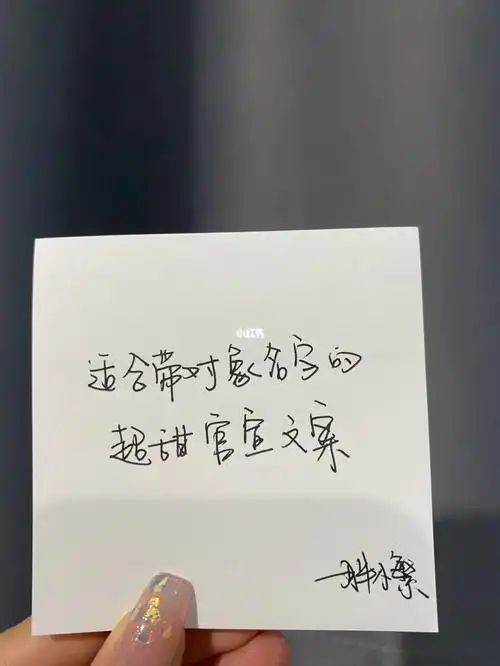 小红书
适合带对象名字的
超甜官宣文案